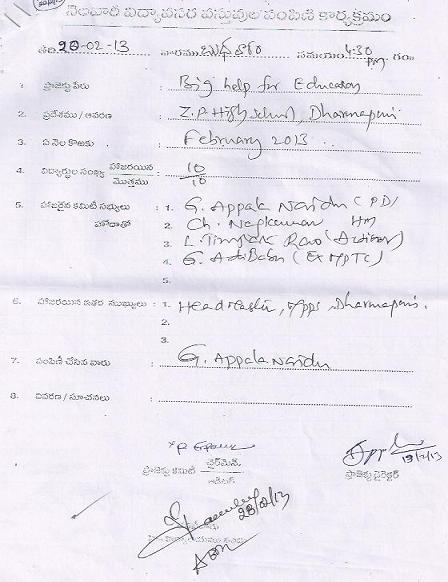 నెలవారీ విద్యావసర వస్తువుల పంపిణీ కార్యక్రమం
తేది 20-02-13 వారము బుధవారం సమయం 4:30 pm గం
1. ప్రాజెక్టు పేరు : Big help for Education
2. ప్రదేశము / ఆవరణ : Z.P. High School, Dharmapuri
3. ఏ నెల కొఱకు : February 2013
4. విద్యార్థుల సంఖ్య హాజరయిన / మొత్తము : 10 / 10
5. హాజరైన కమిటీ సభ్యులు : 1. G. Appala Naidu (PD)
హోదాతో 2. Ch. Nagkumar HM
3. L. Rao
4. G. AdiBabu (Ex MPTC)
5.
6. హాజరయిన ఇతర ముఖ్యులు : 1. Head Master, Mpps Dharmapuri.
2.
3.
7. పంపిణీ చేసిన వారు : G. Appala Naidu
8. వివరణ / సూచనలు :
ప్రాజెక్టు కమిటీ ఛైర్మెన్ ప్రాజెక్టు డైరెక్టర్
20/02/13